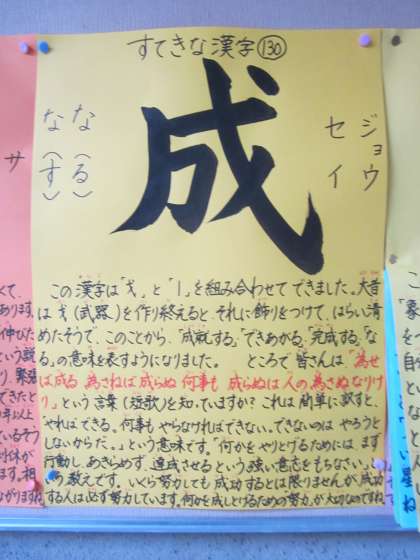 すてきな漢字130
成
ジョウ
セイ
な(る)
な(す)
この漢字は「戈」と「丨」を組み合わせてできました。大昔
は戈(武器)を作り終えると、それに飾りをつけて、はらい清
めたそうで、このことから、「成就する」「できあがる」「完成する」「な
る」の意味を表すようになりました。 ところで皆さんは「為せ
ば成る 為さねば成らぬ 何事も 成らぬは人の為さぬなりけ
り」という言葉(短歌)を知っていますか?これは簡単に訳すと、
やればできる。何事もやらなければできない。できないのはやろうと
しないからだ。」という意味です。「何かをやりとげるためには まず
行動し、あきらめず、達成させるという強い意志をもちなさい。」
の教えです。いくら努力しても成功するとは限りませんが、成功
する人は必ず努力しています。何かを成しとげるための努力が大切なのですね
サ